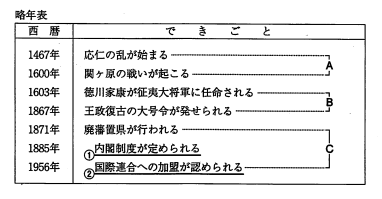 略年表
西暦 できごと
1467年 応仁の乱が始まる
A
1600年 関ヶ原の戦いが起こる
1603年 徳川家康が征夷大将軍に任命される
B
1867年 王政復古の大号令が発せられる
1871年 廃藩置県が行われる
1885年 ①内閣制度が定められる
C
1956年 ②国際連合への加盟が認められる